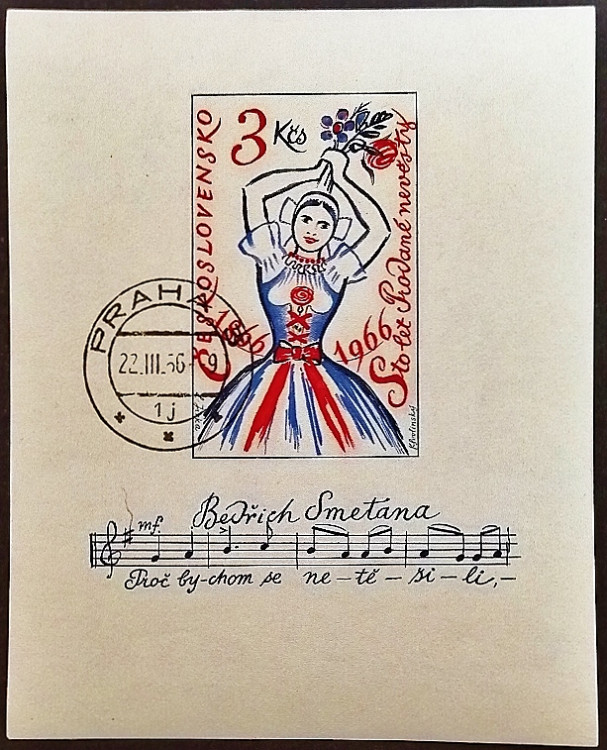 ČESKOSLOVENSKO
3 Kčs
Sto let Prodané nevěsty
1866
1966
PRAHA
22.III.66-9
1j
Bedřich Smetana
mf.
Proč by-chom se ne-tě-ši-li,-